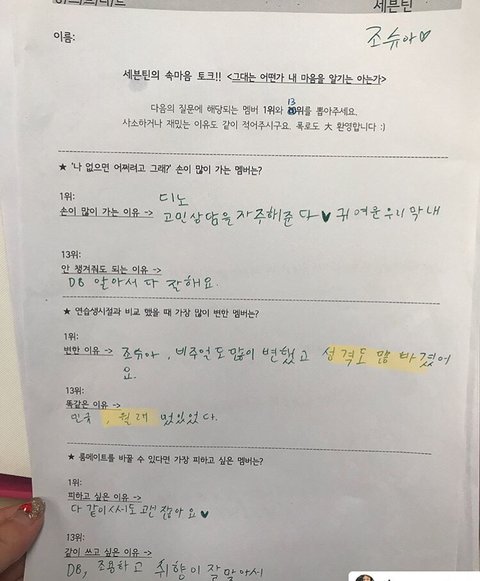 세븐틴
이름:
조슈아♡
세븐틴의 속마음 토크!! <그대는 어떤가 내 마음을 알기는 아는가>
다음의 질문에 해당되는 멤버 1위와 13위를 뽑아주세요.
사소하거나 재밌는 이유도 같이 적어주시구요. 폭로도 大 환영합니다 :)
★ '나 없으면 어쩌려고 그래?' 손이 많이 가는 멤버는?
1위: 디노
손이 많이 가는 이유 -> 고민상담을 자주해준다♥ 귀여운우리막내
13위:
안 챙겨줘도 되는 이유 ->
DB 알아서 다 잘해요.
★ 연습생시절과 비교 했을 때 가장 많이 변한 멤버는?
1위:
변한 이유 -> 조슈아, 비주얼도많이 변했고 성격도 많 바겼어
요.
13위:
똑같은 이유 ->
민규, 월래 멌있었다.
★ 룸메이트를 바꿀 수 있다면 가장 피하고 싶은 멤버는?
1위:
피하고 싶은 이유 ->
다 같이써도 괜찮아요♥
13위:
같이 쓰고 싶은 이유 ->
DB, 조용하고 취향이 잘맞아서